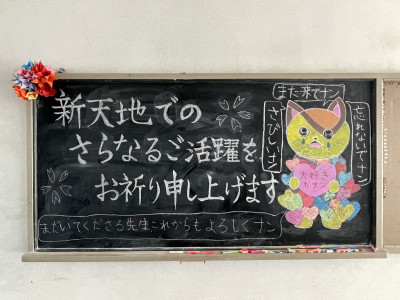 新天地での
さらなるご活躍を
お祈り申し上げます
まだいてくださる先生これからもよろしくナン
また来てナン
さびしいナン
忘れないでナン
大好き
だナン